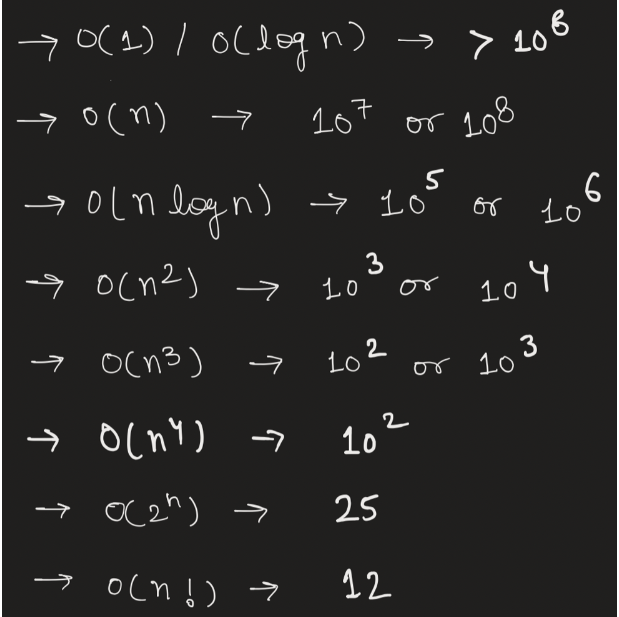 → O(1) / O(log n) → > 10⁸
→ O(n) → 10⁷ or 10⁸
→ O(n log n) → 10⁵ or 10⁶
→ O(n²) → 10³ or 10⁴
→ O(n³) → 10² or 10³
→ O(n⁴) → 10²
→ O(2ⁿ) → 25
→ O(n!) → 12